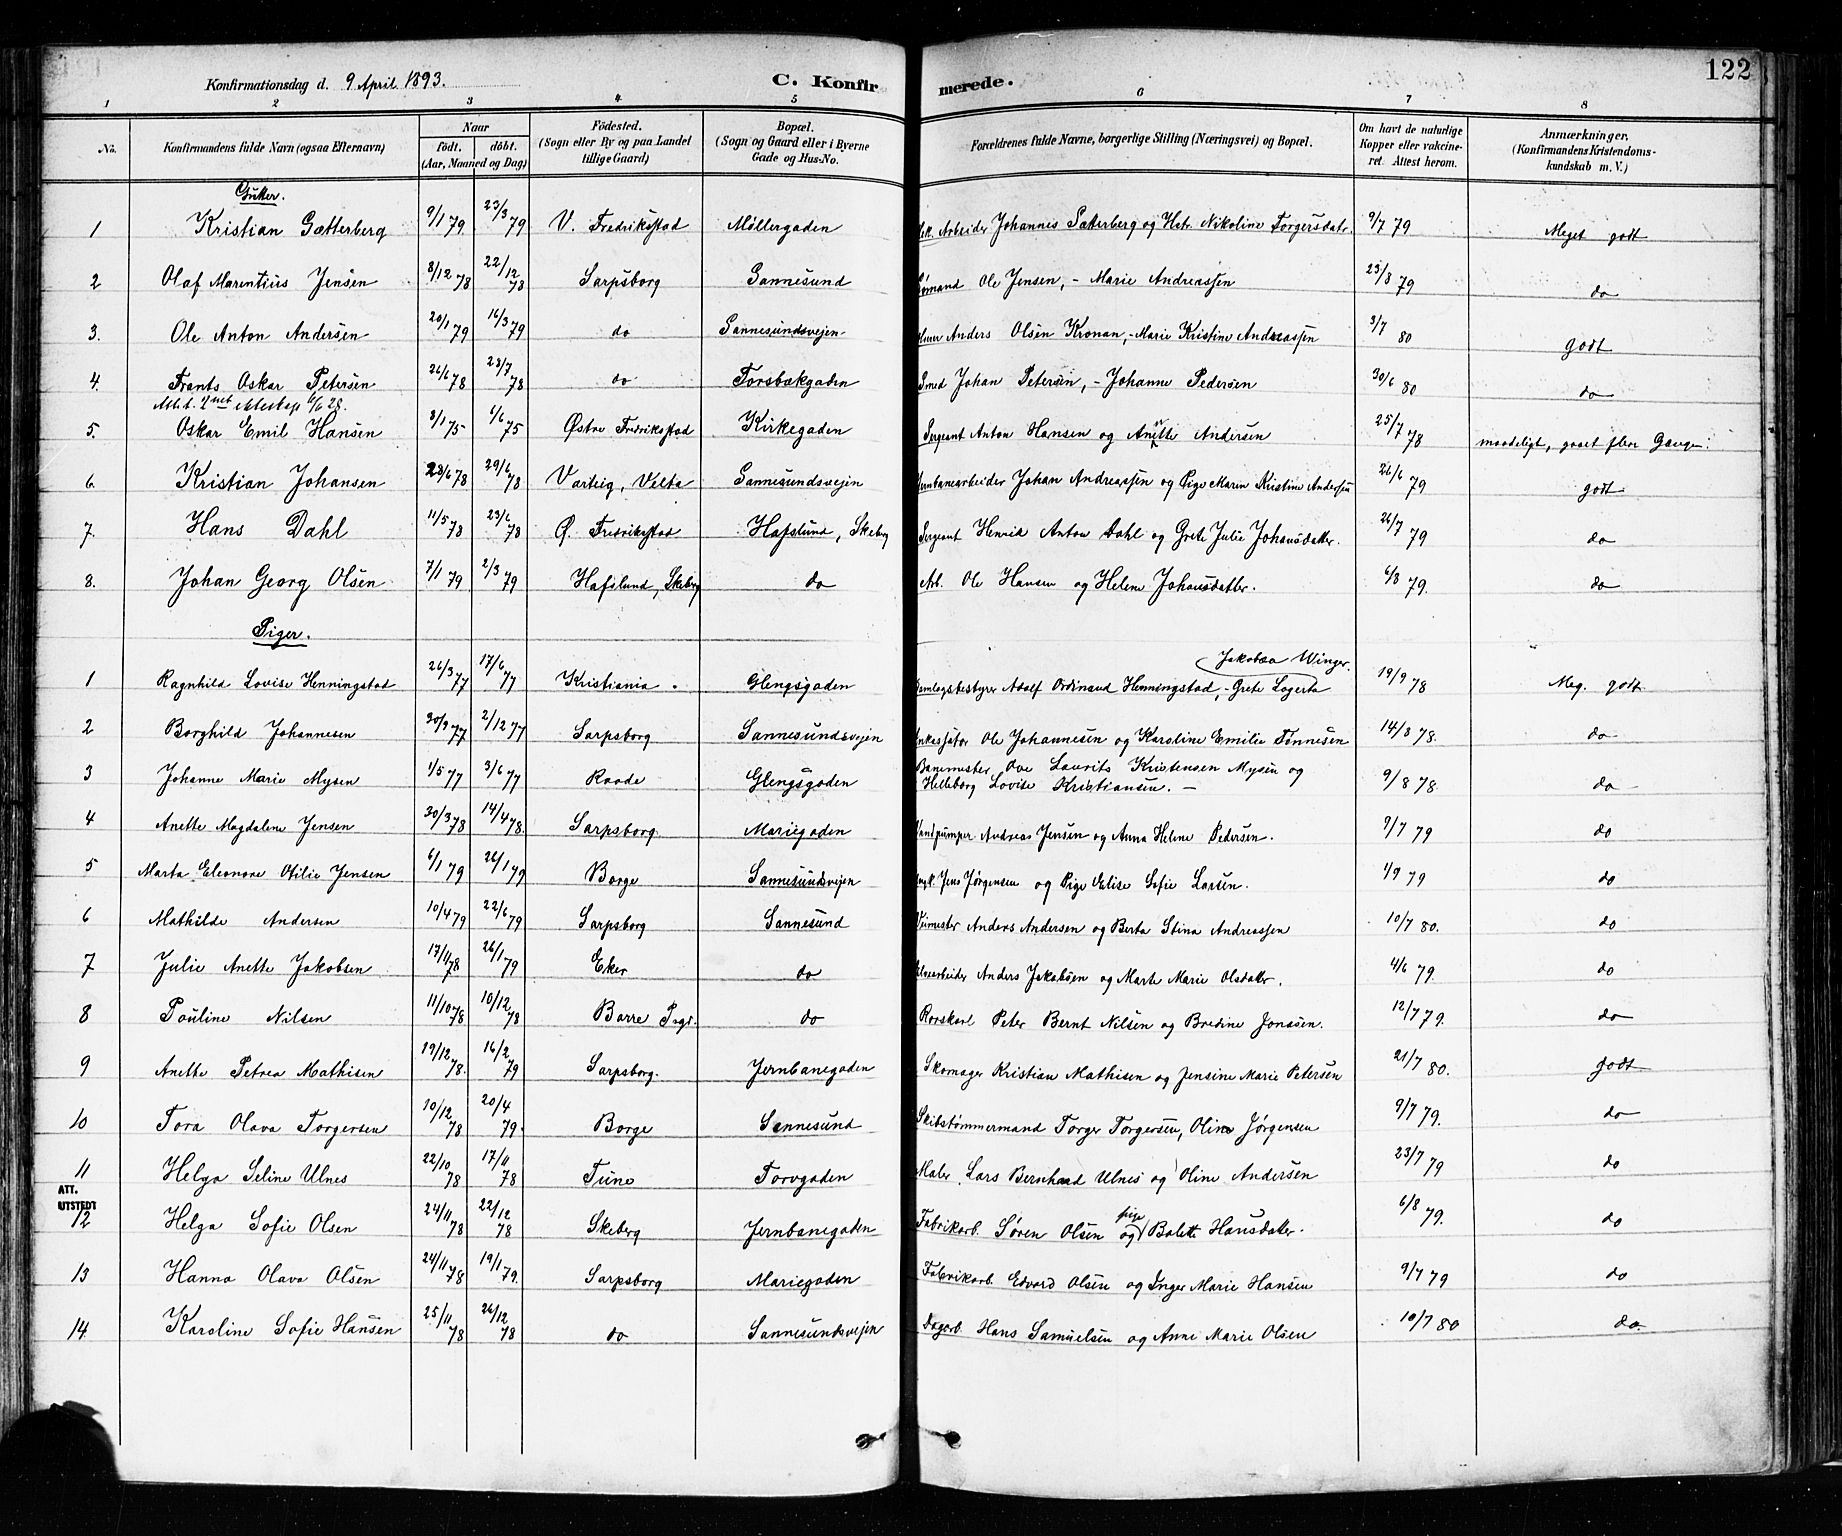 Konfirmationsdag d. 9 April 1893. C. Konfirmerede. 122
1 2 3 4 5 6 7 8
No. Konfirmandens fulde Navn (ogsaa Efternavn) Naar födt. döbt. (Aar, Maaned og Dag) Födested. (Sogn eller By og paa Landet tillige Gaard) Bopæl. (Sogn og Gaard eller i Byerne Gade og Hus-No. Forældrenes fulde Navne, borgerlige Stilling (Næringsvei) og Bopæl. Om havt de naturlige Kopper eller vakcineret. Attest herom. Anmærkninger. (Konfirmandens Kristendomskundskab m. V.)
Gutter.
1 Kristian Gætterberg 9/1 79 23/3 79 V. Fredriksstad Møllergaden Arbeider Johannes Sætterberg og Hstr. Nikoline Torgersdatr. 9/7 79 Meget godt
2 Olaf Marentius Jensen 8/12 78 22/12 78 Sarpsborg Sannesund Ole Jensen, - Marie Andreassen 23/8 79 do
3. Ole Anton Andersen 20/1 79 16/3 79 do Sannesundsvejen Anders Olsen Kronan, - Marie Kristine Andreassen 3/7 80 godt
4. Frants Oskar Petersen 26/6 78 23/7 78 do Torsbækgaden Smed Johan Petersen, - Johanne Pedersen 30/6 80 do
Att. t. 2net ekteskap 6/6 28.
5. Oskar Emil Hansen 8/1 75 6/6 75 Østre Fredriksstad Kirkegaden Sergeant Anton Hansen og Anette Andersen 25/7 78 maadeligt, gaaet flere Gange.
6. Kristian Johansen 23/6 78 29/6 78 Varteig, Velta Sannesundsvejen Johan Andreassen og Pige Maren Kristine Andersen 26/6 79 godt
7. Hans Dahl 11/5 78 23/6 78 Ø. Fredriksstad Hafslund, Skeberg Sergeant Henrik Anton Dahl og Grete Julie Johansdatter. 26/7 79 do
8. Johan Georg Olsen 7/1 79 2/3 79 Hafslund, Skeberg do Arb. Ole Hansen og Helene Johansdatter. 6/8 79. do
Piger.
Jakobæa Winger.
1 Ragnhild Lovise Henningstad 26/3 77 17/6 77 Kristiania. Glengsgaden Adolf Ordinand Henningstad, - Grete Lagerta 19/9 78 Meg. godt
2 Borghild Johannesen 30/9 77 2/12 77 Sarpsborg Sannesundsvejen Ole Johannesen og Karoline Emilie Tønnesen 14/8 78. do
3 Johanne Marie Mysen 1/5 77 3/6 77 Raade Glengsgaden Banemester Ove Laurits Kristensen Mysen og Helleborg Lovise Kristiansen. - 9/8 78 do
4 Anette Magdalene Jensen 30/3 78 14/4 78. Sarpsborg. Mariegaden Vandpumper Andreas Jensen og Anna Helene Pedersen. 9/7 79 do
5 Marta Eleonore Otilie Jensen 6/1 79 26/1 79 Borge Sannesundsvejen Jens Jørgensen og Pige Elise Sofie Larsen. 1/9 79 do
6 Mathilde Andersen 10/4 79 22/6 79 Sarpsborg Sannesund Anders Andersen og Berta Stina Andreassen 10/7 80. do
7 Julie Anette Jakobsen 17/11 78 26/1 79 Eker do Anders Jakobsen og Marte Marie Olsdatter. 4/6 79. do
8 Pauline Nilsen 11/10 78 10/12 78 Borre Prgd. do Rorskarl Peter Bernt Nilsen og Bredine Jonasen. 12/7 79. do
9 Anette Petrea Mathisen 19/12 78. 16/2 79 Sarpsborg. Jernbanegaden Skomager Kristian Mathisen og Jensine Marie Petersen 21/7 80. godt
10 Tora Olava Torgersen 10/12 78 20/4 79. Borge Sannesund Skibstømmermand Torger Torgersen, Oline Jørgensen 9/7 79. do
11 Helga Seline Ulnes 22/10 78 17/11 78 Tune Torvgaden Maler Lars Bernhard Ulnes og Oline Andersen 23/7 79 do
ATT. UTSTEDT
12 Helga Sofie Olsen 24/11 78 22/12 78 Skeberg Jernbanegaden Fabrikarb. Søren Olsen og pige Bolette Hansdatter. 6/8 79. do
13 Hanna Olava Olsen 24/11 78 19/1 79. Sarpsborg Mariegaden Fabrikarb. Edvard Olsen og Inger Marie Hansen 9/7 79 do
14 Karoline Sofie Hansen 25/11 78 26/12 78 do Sannesundsvejen Dagarb. Hans Samuelsen og Anne Marie Olsen 10/7 80 do